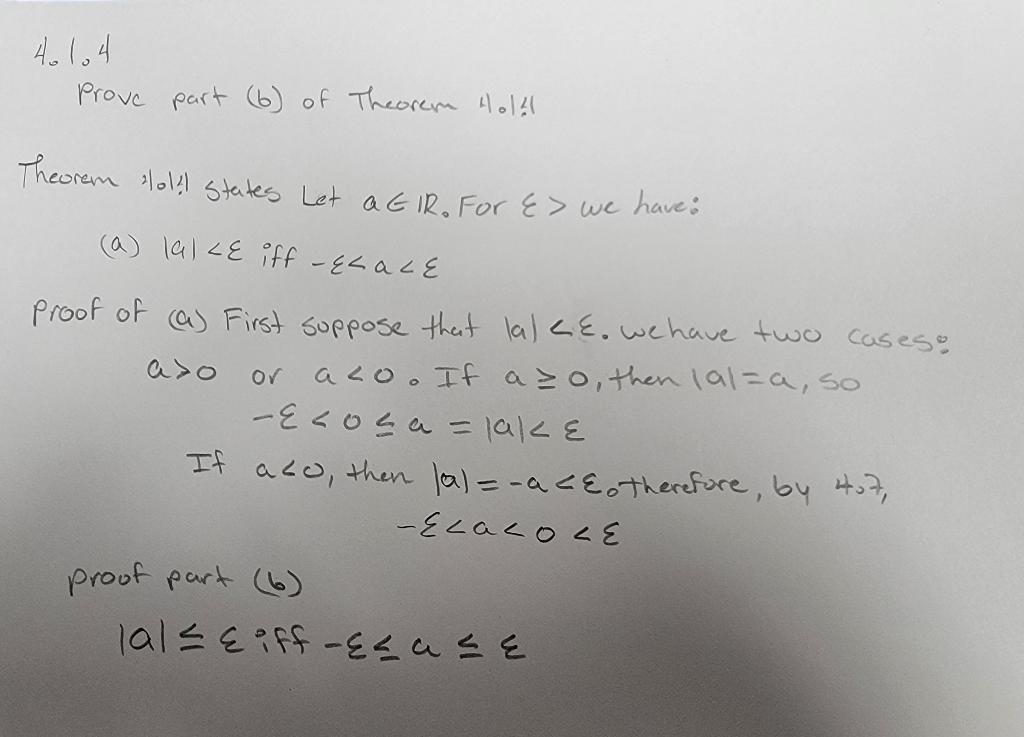 4.1.4
Prove part (b) of Theorem 4.1.4
Theorem 4.1.4 states Let a ∈ ℝ. For ε > we have:
(a) |a| < ε iff -ε < a < ε
Proof of (a) First suppose that |a| < ε. we have two cases:
a > 0 or a < 0. If a ≥ 0, then |a| = a, so
-ε < 0 ≤ a = |a| < ε
If a < 0, then |a| = -a < ε. therefore, by 4.7,
-ε < a < 0 < ε
proof part (b)
|a| ≤ ε iff -ε ≤ a ≤ ε